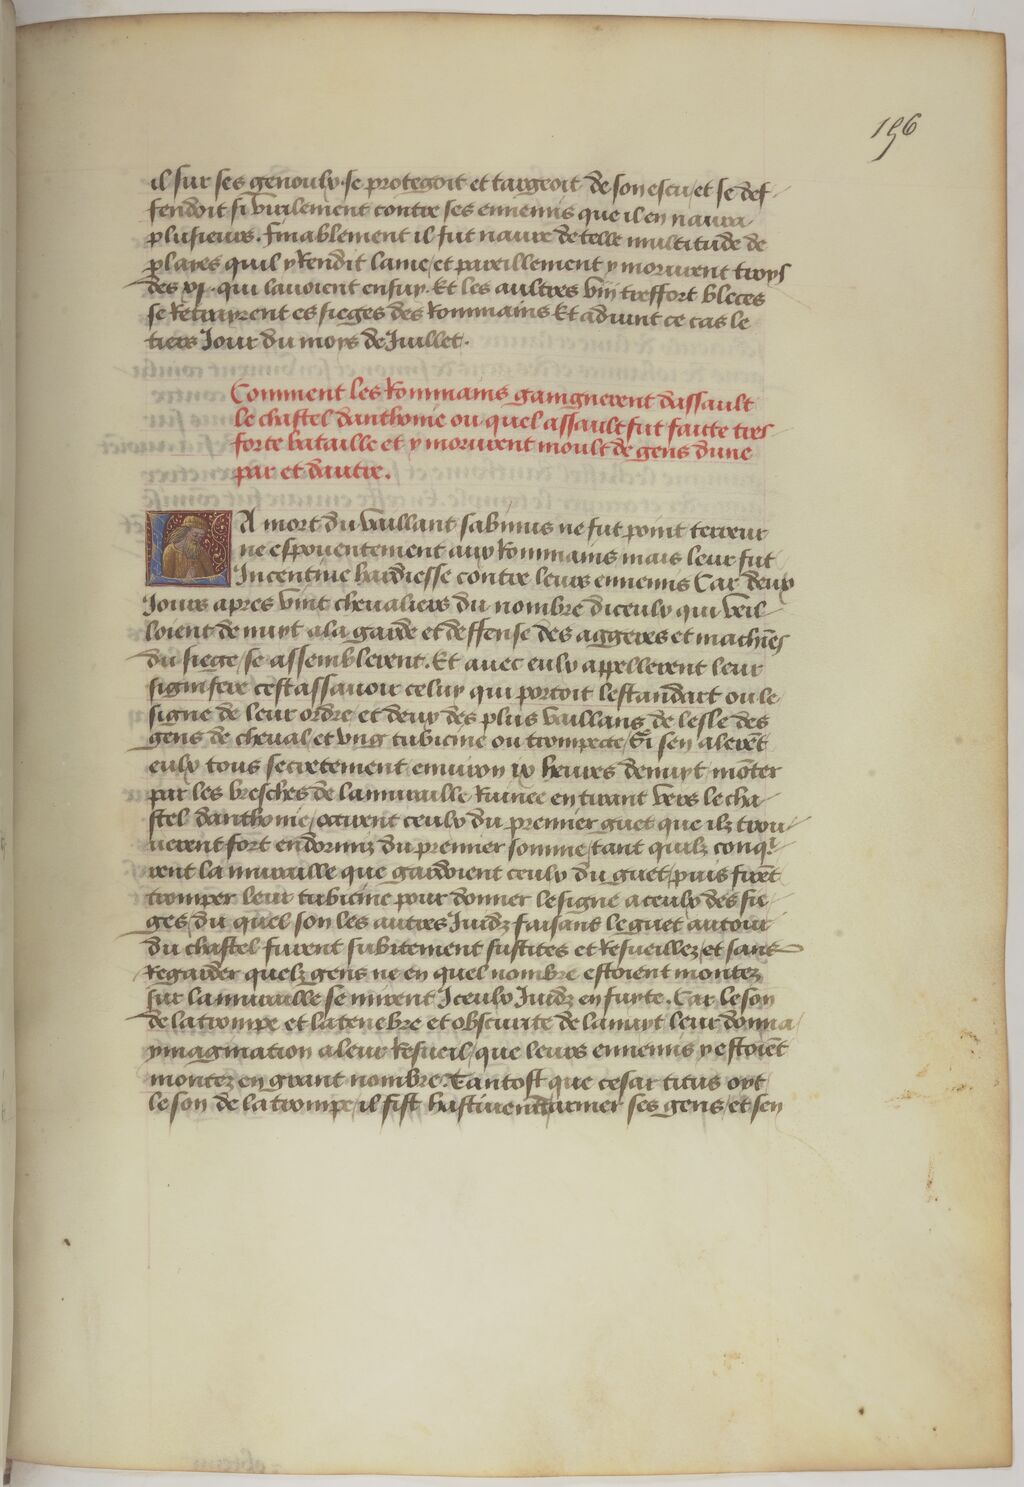 196
il sur ses genoulx. se protegoit et targeoit de son escu, et se def-
fendoit si virilement contre ses ennemis que il en navra
plusieurs. Finablement il fut navre de telle multitude de
playes quil y Rendit lame, et pareillement y moururent troys
des xj. qui lavoient ensuy. Et les aultres viij tresfort bleces
se Retrayrent es sieges des Rommains Et advint ce cas le
tiers Jour du moys de Juillet.
Comment les Rommains gaingnerent dassault
le chastel danthonie ou quel assault fut faitte tres
forte bataille et y moururent moult de gens dune
par et dautre.
LA mort du vaillant sabinus ne fut point terreur
ne espouentement aux Rommains mais leur fut
Incentive hardiesse contre leurs ennemis Car deux
Jours apres vint chevaliers du nombre diceulx qui veil-
loient de nuyt a la garde et deffense des aggeres et machines
du siege, se assemblerent. Et avec eulx appellerent leur
signifere cest assavoir celuy qui portoit lestandart ou le
signe de leur ordre et deux des plus vaillans de lesle des
gens de cheval, et ung tubicine ou trompette, Et sen alerent
eulx tous secretement environ ix heures de nuyt monter
par les bresches de la muraille Ruinee en tirant vers le cha-
stel danthonie, occirent ceulx du premier guet que ilz trou-
verent fort endormiz du premier somme, tant quilz conqui-
rent la muraille que gardoient ceulx du guet, puis firent
tromper leur tubicine pour donner le signe a ceulx des sie-
ges, du quel son les autres Juidz faisans le guet autour
du chastel furent subitement sustites et Resueillez, et sans
Regarder quelz gens ne en quel nombre estoient montez
sur la muraille se mirent Iceulx Juidz en fuyte. Car le son
de la trompe et la tenebre et obscurite de la nuyt leur donna
ymagination a leur Resueil, que leurs ennemis y estoient
montez en grant nombre. Tantost que cesar titus oyt
le son de la trompe, il fist hastivement armer ses gens, et sen